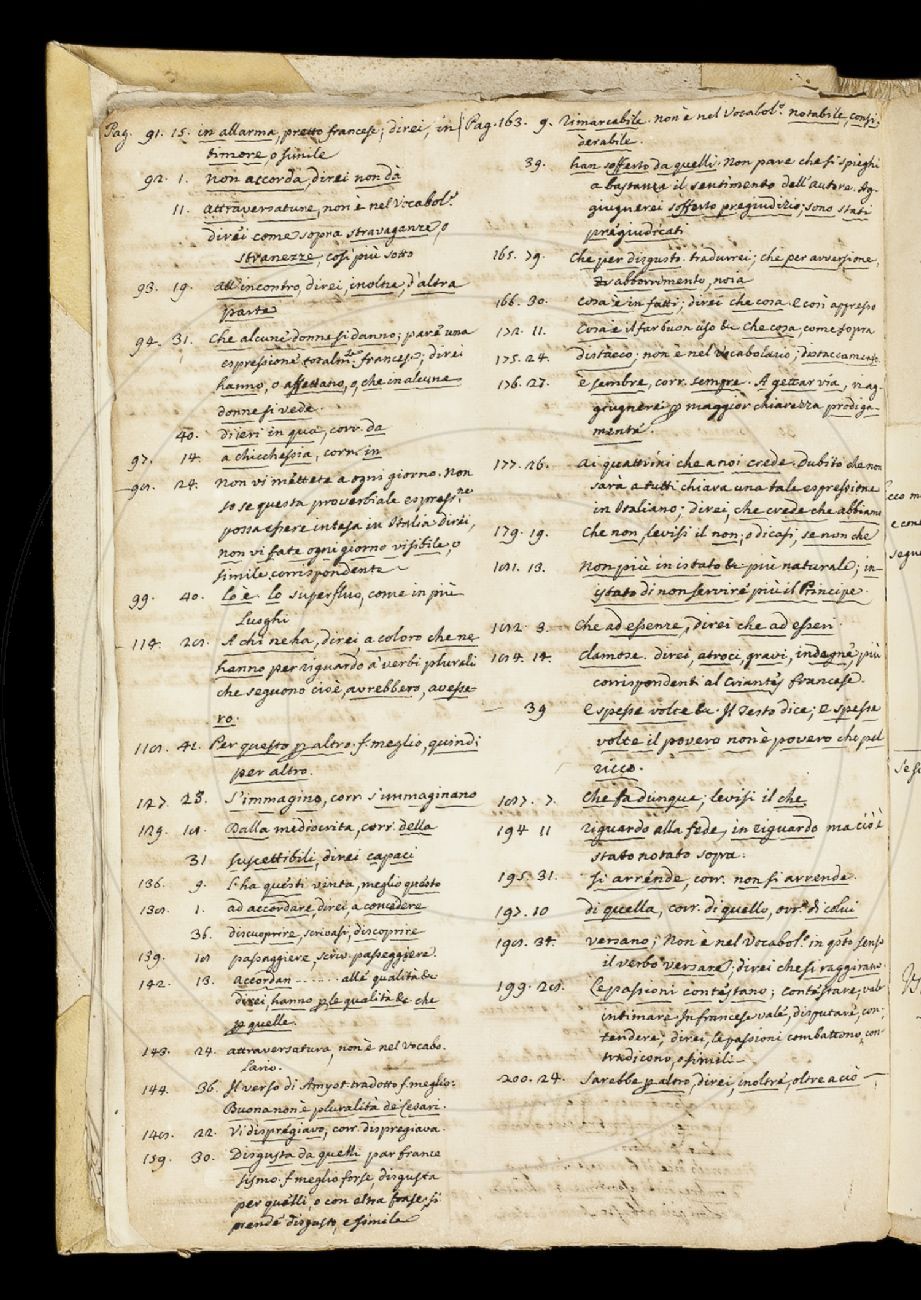 Pag. 91. 15. in allarma, pretto francese; direi, in
timore o simile
92. 1. non accorda, direi non dà
11. attraversature, non è nel Vocabol.º
direi come sopra stravaganze, o
stranezze, così più sotto
93. 19. all'incontro, direi, inoltre, d'altra
parte
94. 31. Che alcune donne si danno; pare una
espressione totalm.te francese; direi
hanno, o affettano, o, che in alcune
donne si vede.
40. di ieri in qua, corr. da
97. 14. a chicchessia, corr. in
98. 24. non vi mettete a ogni giorno. Non
so se questa proverbiale espress.ne
possa essere intesa in Italia direi,
non vi fate ogni giorno visibile, o
simile corrispondente
99. 40. lo è. lo superfluo, come in più
Luoghi
114. 28. A chi ne ha, direi, a coloro che ne
hanno per riguardo a' verbi plurali
che seguono cioè, avrebbero, avesse-
ro.
118. 41. Per questo p altro. f. meglio, quindi
per altro.
127. 25. S'immagino, corr. s'immaginano
129. 18. Dalla mediocrita, corr. della
31 suscettibili, direi capaci
136. 9. S'ha questi vinta, meglio questo
138. 1. ad accordare, direi, a concedere
36. discuoprire, scrivasi, discoprire
139. 18 passaggiere, scriv. passeggiere.
142. 13. Accordan ....... alle qualità &c
direi, hanno p le qualità &c che
p quelle.
143. 24. attraversatura, non è nel Vocabo-
lario.
144. 36. Il verso di Amyot tradotto f. meglio:
Buona non è pluralità de' Cesari.
148. 22. Vi dispregiavo, corr. dispregiava.
159. 30. Disgusta da quelli par france
sismo. f. meglio forse, disgusta
per quelli, o con altra frase, si
prende disgusto, e simile
Pag. 163. 9. Rimarcabile. non è nel Vocabol.º notabile, consi-
derabile.
39. han sofferto da quelli. Non pare che si spieghi
a bastanza il sentimento dell'autore. Ag-
giugnerei sofferto pregiudizio; sono stati
pregiudicati
165. 39. che per disgusto. tradurrei; che per avversione,
abborrimento, noia
166. 30. cosa è in fatti; direi che cosa. E così appresso
172. 11. Cosa è il far buon uso &c che cosa, come sopra
175. 24. distacco; non è nel Vocabolario; distaccamento
176. 27. è sembre, corr. sempre. A gettar via, vi ag-
giugnerei p maggior chiarezza prodiga-
mente.
177. 26. ai quattrini che a noi crede. Dubito che non
sarà a tutti chiara una tale espressione
in Italiano; direi, che crede che abbiamo
179. 19. Che non, levisi il non; o dicasi, se non che
181. 13. Non più in istato &c più naturale; in-
istato di non servire più il Principe.
182. 3. che ad essenze, direi che ad esseri.
184. 14. clamose. direi, atroci, gravi, indegne, più
corrispondenti al Criantes francese.
39 E spesse volte &c. Il Testo dice; E spesse
volte il povero non è povero che pel
ricco.
187. 7. Che fa dunque; levisi il che
194 11 riguardo alla fede, in riguardo ma ciò è
stato notato sopra.
195. 31. Si arrende, corr. non si arrende.
197. 10 di quella, corr. di quello, ovv.º di colui
198. 34. versano; Non è nel Vocabol.º in qsto senso
il verbo versare; direi che si raggirano.
199. 28. Le passioni contestano; contestare, val
intimare. In francese vale, disputare, con-
tendere; direi, le passioni combattono, con-
tradicono, o simili -
200. 24. Sarebbe p altro, direi, inoltre, oltre a ciò -